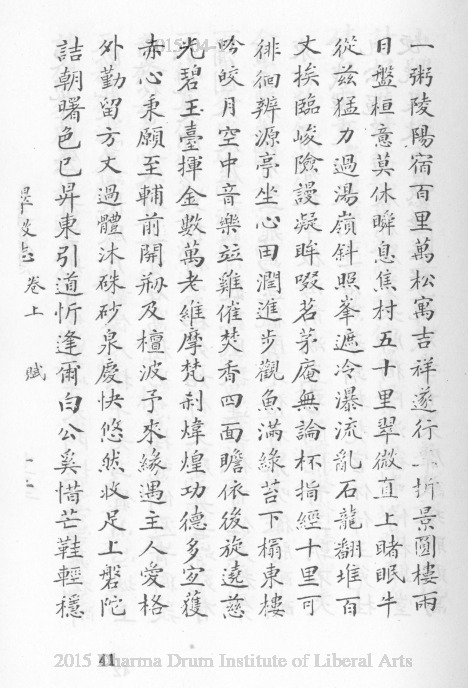 一粥陵陽宿百里萬松寓吉祥遂行一折景圓樓雨
日盤桓意莫休瞬息焦村五十里翠微直上睹眠牛
從茲猛力過湯嶺斜照峯遮冷瀑流亂石龍翻堆百
丈挨臨峻險謾凝眸啜茗茅庵無論杯指經十里可
徘徊辨源亭坐心田潤進步觀魚滿綠苔下榻東樓
吟皎月空中音樂竝雞催焚香四面瞻依後旋遶慈
光碧玉臺揮金數萬老維摩梵剎煒煌功德多定獲
赤心秉願至輔前開刱及檀波予來緣遇主人愛格
外勤留方丈過體沐硃砂泉慶快悠然收足上磐陀
詰朝曙色已昇東引道忻逢爾白公奚惜芒鞋輕穩
卷上 賦
41
2015 Dharma Drum Institute of Liberal Arts